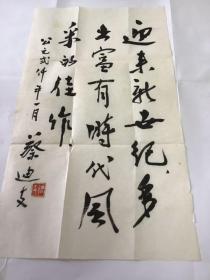 迎来新世纪，多
出富有时代风
采的佳作
公元贰仟年一月
蔡迪支